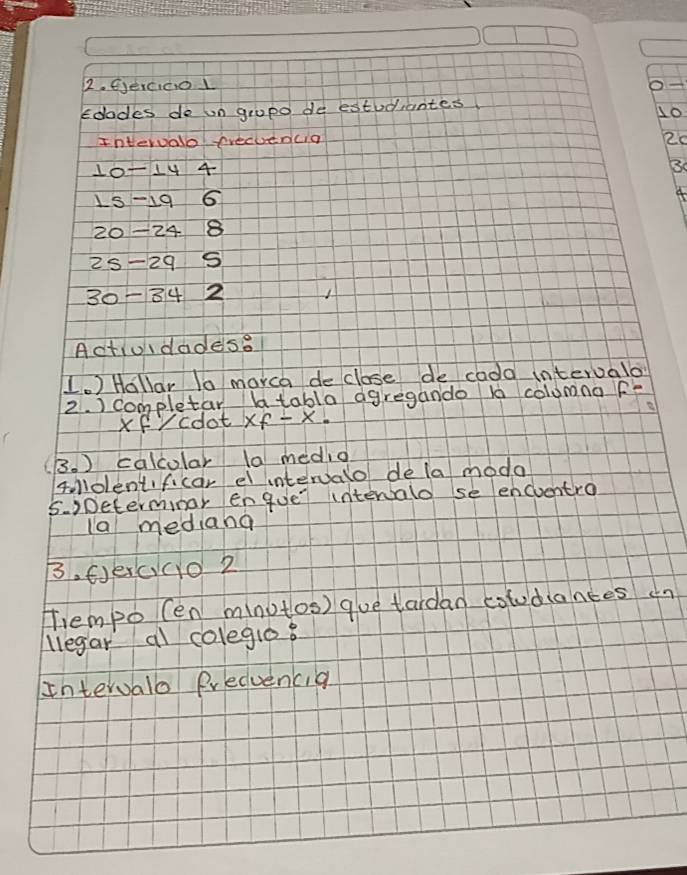 2. Ejercicio 1
Edades de un grupo de estudiantes.
Intervalo frecuencia
10-14 4
15-19 6
20-24 8
25-29 5
30-34 2
Actividades:
1.) Hallar la marca de clase de cada intervalo
2.) completar la tabla agregando la columna F-
xf/cdot xf-x.
(3.) calcular la media
4.) Identificar el intervalo de la moda
5.) Determinar en que intervalo se encuentra
la mediana
3. Ejercicio 2
Tiempo (en minutos) que tardan estudiantes en
llegar al colegio:
Intervalo frecuencia
0-
10
20
30
4